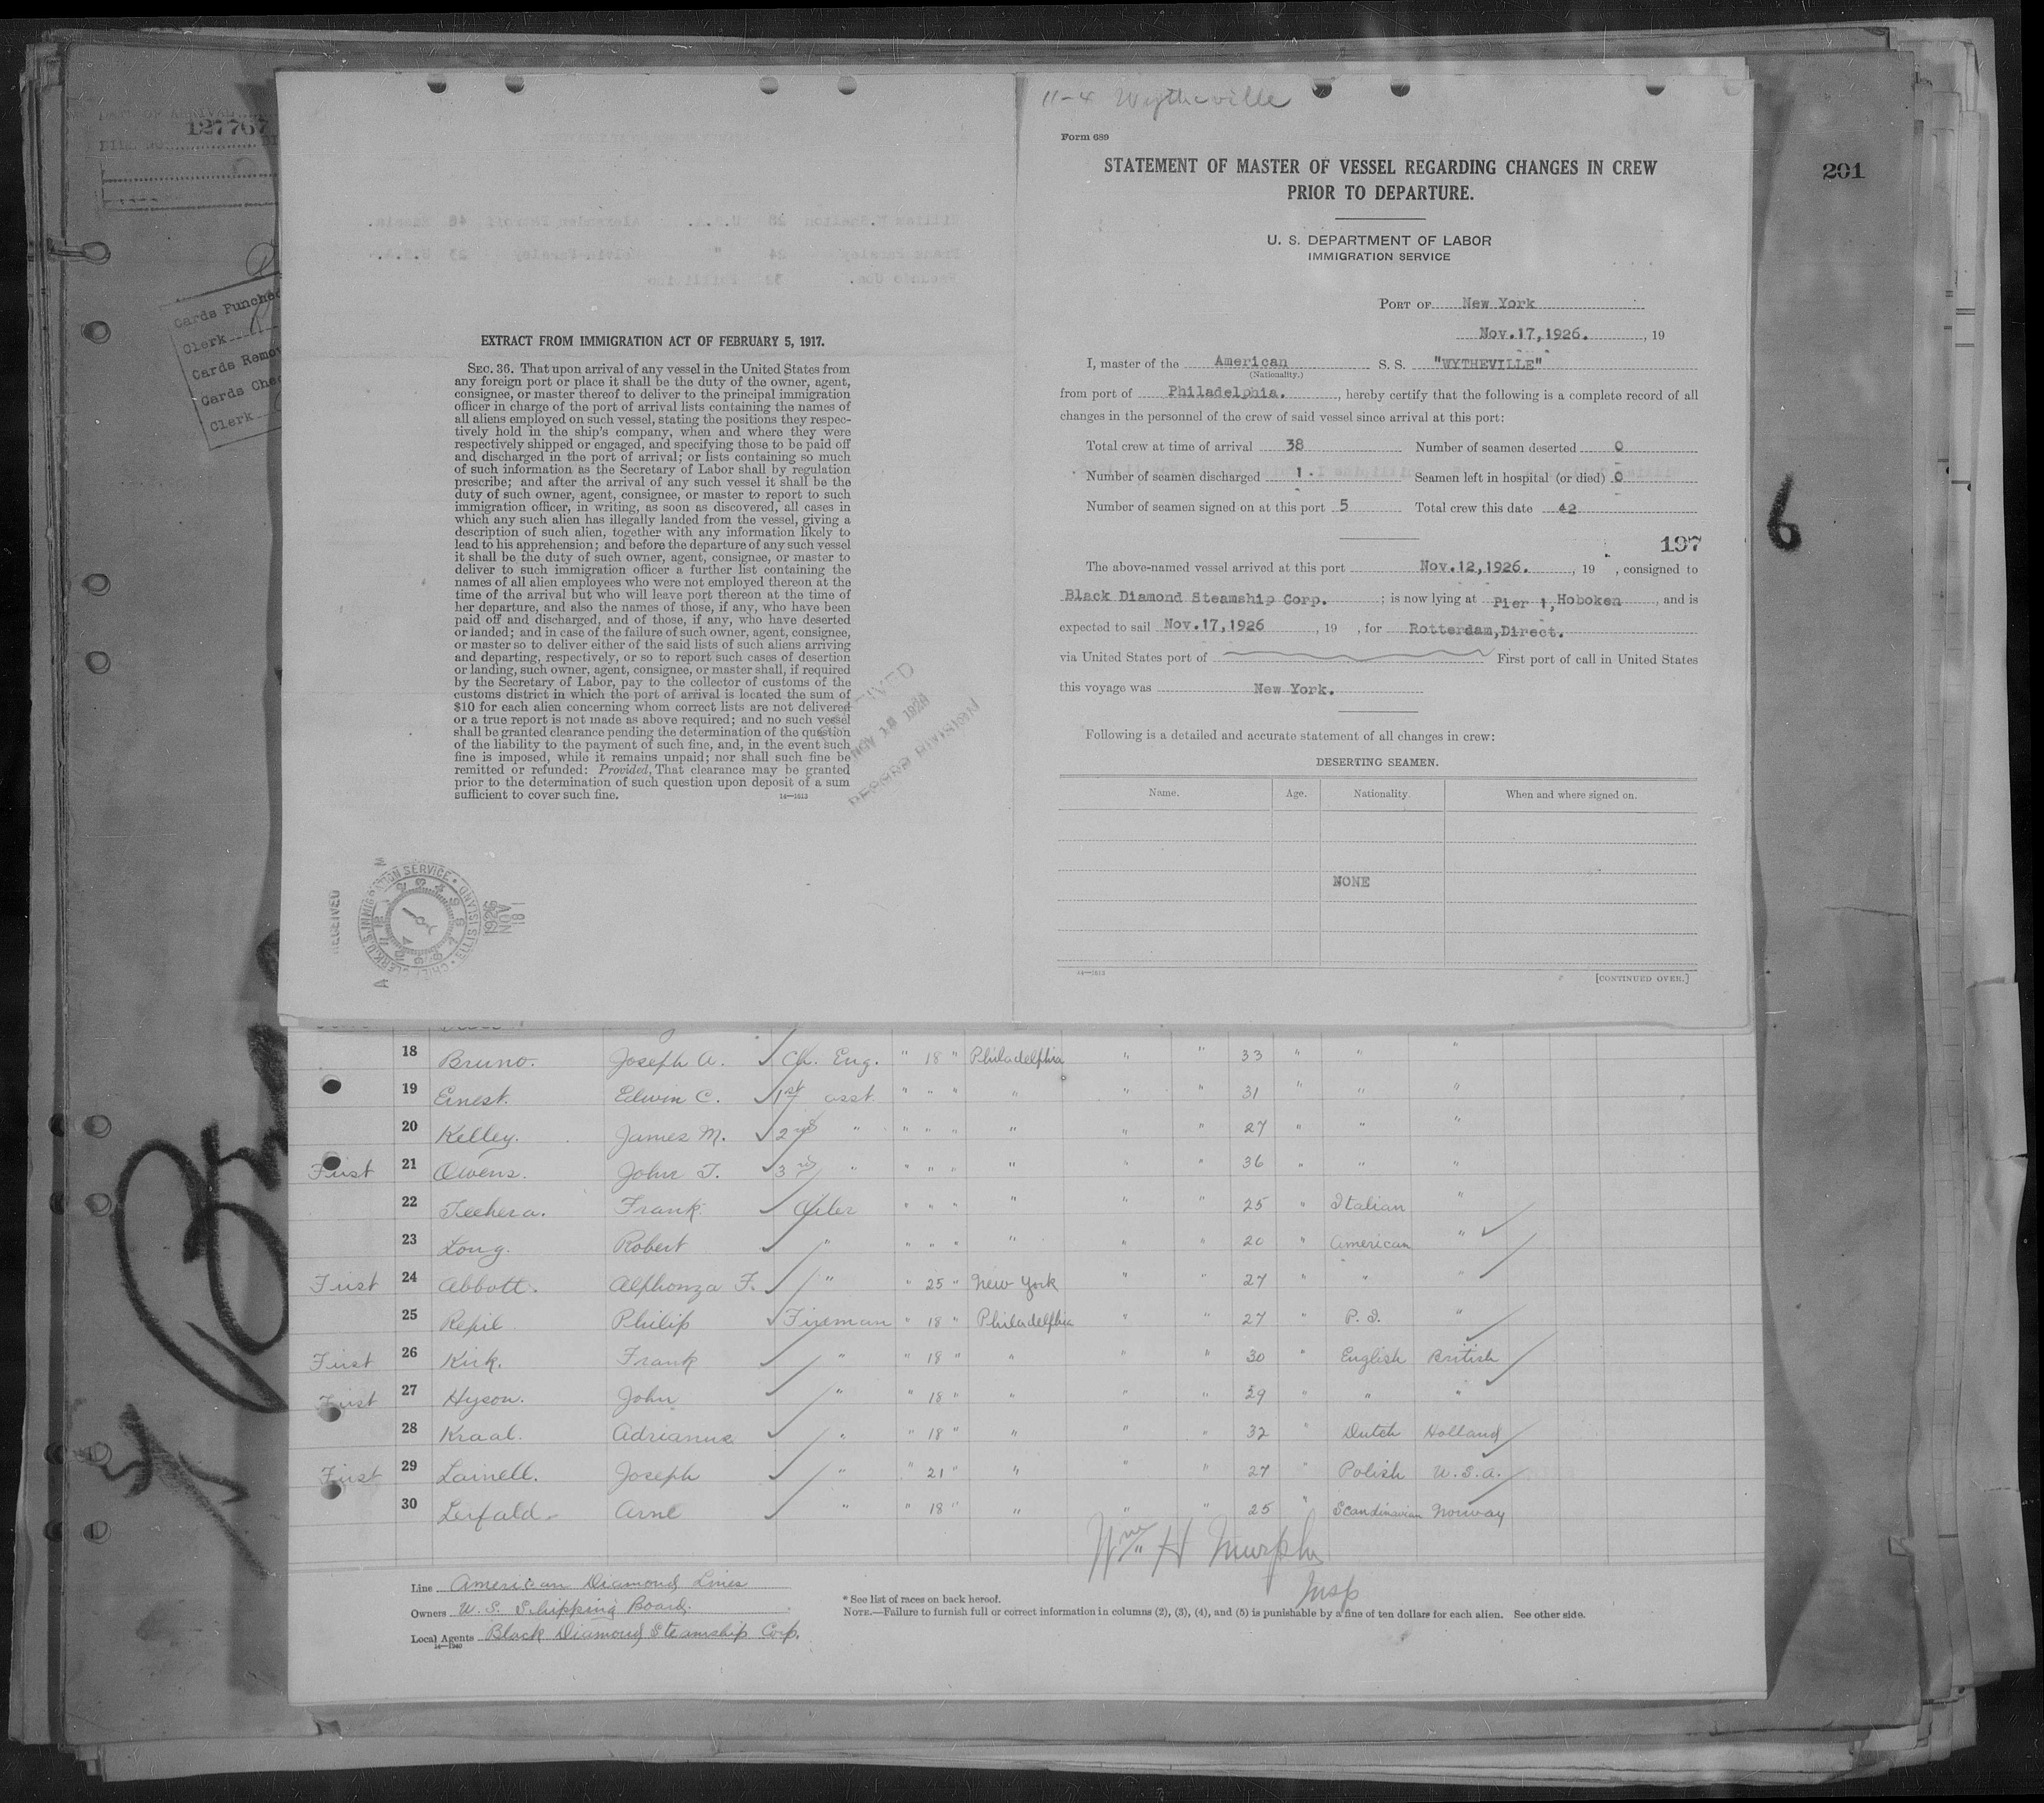 127767
201
Cards Punched
Clerk
Cards Remov
Cards Chec
Clerk
EXTRACT FROM IMMIGRATION ACT OF FEBRUARY 5, 1917.
SEC. 36. That upon arrival of any vessel in the United States from
any foreign port or place it shall be the duty of the owner, agent,
consignee, or master thereof to deliver to the principal immigration
officer in charge of the port of arrival lists containing the names of
all aliens employed on such vessel, stating the positions they respec-
tively hold in the ship's company, when and where they were
respectively shipped or engaged, and specifying those to be paid off
and discharged in the port of arrival; or lists containing so much
of such information as the Secretary of Labor shall by regulation
prescribe; and after the arrival of any such vessel it shall be the
duty of such owner, agent, consignee, or master to report to such
immigration officer, in writing, as soon as discovered, all cases in
which any such alien has illegally landed from the vessel, giving a
description of such alien, together with any information likely to
lead to his apprehension; and before the departure of any such vessel
it shall be the duty of such owner, agent, consignee, or master to
deliver to such immigration officer a further list containing the
names of all alien employees who were not employed thereon at the
time of the arrival but who will leave port thereon at the time of
her departure, and also the names of those, if any, who have been
paid off and discharged, and of those, if any, who have deserted
or landed; and in case of the failure of such owner, agent, consignee,
or master so to deliver either of the said lists of such aliens arriving
and departing, respectively, or so to report such cases of desertion
or landing, such owner, agent, consignee, or master shall, if required
by the Secretary of Labor, pay to the collector of customs of the
customs district in which the port of arrival is located the sum of
$10 for each alien concerning whom correct lists are not delivered
or a true report is not made as above required; and no such vessel
shall be granted clearance pending the determination of the question
of the liability to the payment of such fine, and, in the event such
fine is imposed, while it remains unpaid; nor shall such fine be
remitted or refunded: Provided, That clearance may be granted
prior to the determination of such question upon deposit of a sum
sufficient to cover such fine.
14—1613
RECEIVED
1926
NOV
18
11-4 Wytheville
Form 689
STATEMENT OF MASTER OF VESSEL REGARDING CHANGES IN CREW
PRIOR TO DEPARTURE.
U. S. DEPARTMENT OF LABOR
IMMIGRATION SERVICE
PORT OF New York
Nov.17,1926. , 19
I, master of the American S. S. "WYTHEVILLE"
(Nationality.)
from port of Philadelphia. , hereby certify that the following is a complete record of all
changes in the personnel of the crew of said vessel since arrival at this port:
Total crew at time of arrival 38 Number of seamen deserted 0
Number of seamen discharged 1. Seamen left in hospital (or died) 0
Number of seamen signed on at this port 5 Total crew this date 42
197
The above-named vessel arrived at this port Nov.12,1926. , 19 , consigned to
Black Diamond Steamship Corp. ; is now lying at Pier 1, Hoboken , and is
expected to sail Nov.17,1926 , 19 , for Rotterdam,Direct.
via United States port of First port of call in United States
this voyage was New York.
Following is a detailed and accurate statement of all changes in crew:
DESERTING SEAMEN.
Name. Age. Nationality. When and where signed on.
NONE
14—1613 [CONTINUED OVER.]
6
18 Bruno. Joseph A. Ch. Eng. " 18 " Philadelphia " " 33 " " "
19 Ernest. Edwin C. 1st asst. " " " " " " 31 " " "
20 Kelley. James M. 2nd " " " " " " " 27 " " "
First 21 Owens. John T. 3rd " " " " " " " 36 " " "
22 Frank. Oiler " " " " " " 25 " Italian "
23 Long. Robert " " " " " " " 20 " American "
First 24 Abbott. Alphonza F. " " 25 " New York " " 27 " " "
25 Repil Philip Fireman " 18 " Philadelphia " " 27 " P. I. "
First 26 Kirk. Frank " " 18 " " " " 30 " English British
First 27 Hyson. John " " 18 " " " " 29 " " "
28 Kraal. Adrianus " " 18 " " " " 32 " Dutch Holland
First 29 Lainell. Joseph " " 21 " " " " 27 " Polish U.S.A.
30 Lerfald. Arne " " 18 " " " " 25 " Scandinavian Norway
Wm H Murphy
Insp
Line American Diamond Lines
Owners U. S. Shipping Board.
Local Agents Black Diamond Steamship Corp.
14—1240
* See list of races on back hereof.
NOTE.—Failure to furnish full or correct information in columns (2), (3), (4), and (5) is punishable by a fine of ten dollars for each alien. See other side.